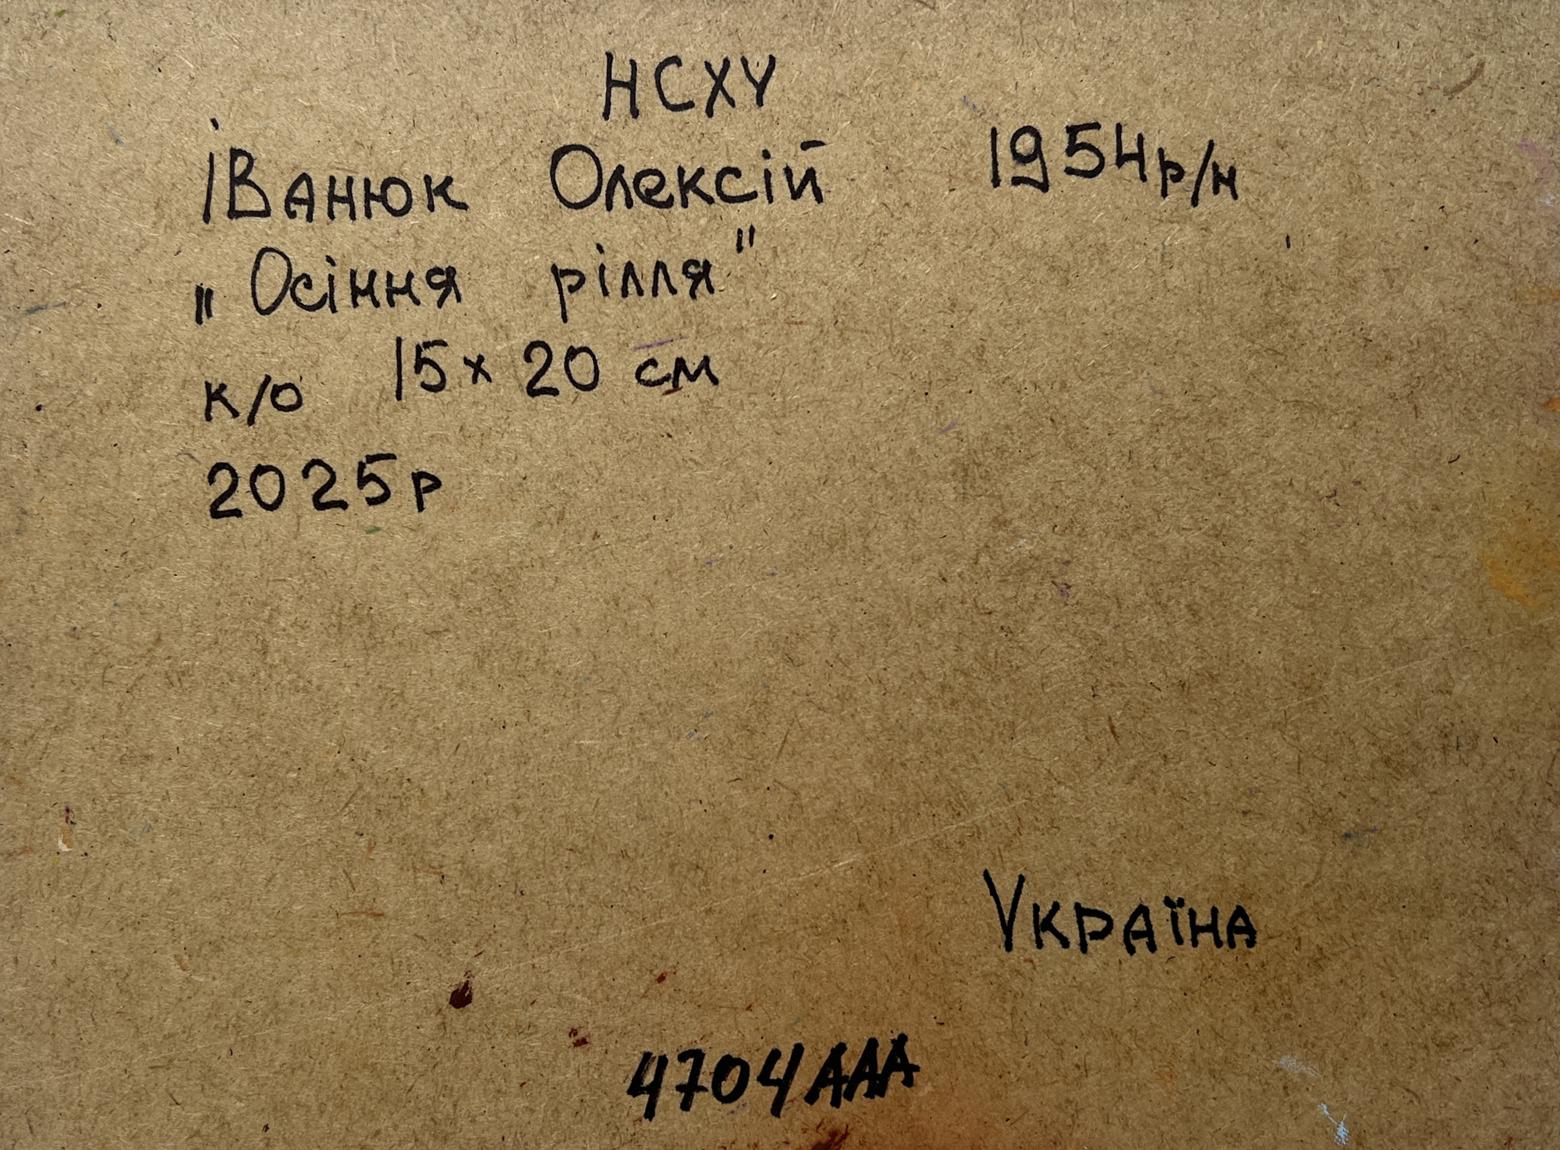 НСХУ
Іванюк Олексій 1954 р/н
„Осіння рілля"
к/о 15х20 см
2025р
Україна
4704ААА